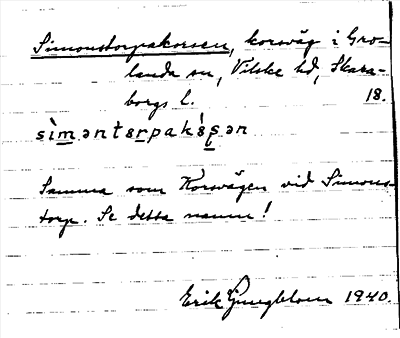 Simonstorpakorsen, korsväg i Gro-
landa sn, Vilske hd, Skara-
borgs l. 18.
sìməntɛrpakɛ̀ʂən
Samma som Korsvägen vid Simons-
torp. Se detta namn!
Erik Ljungblom 1940.